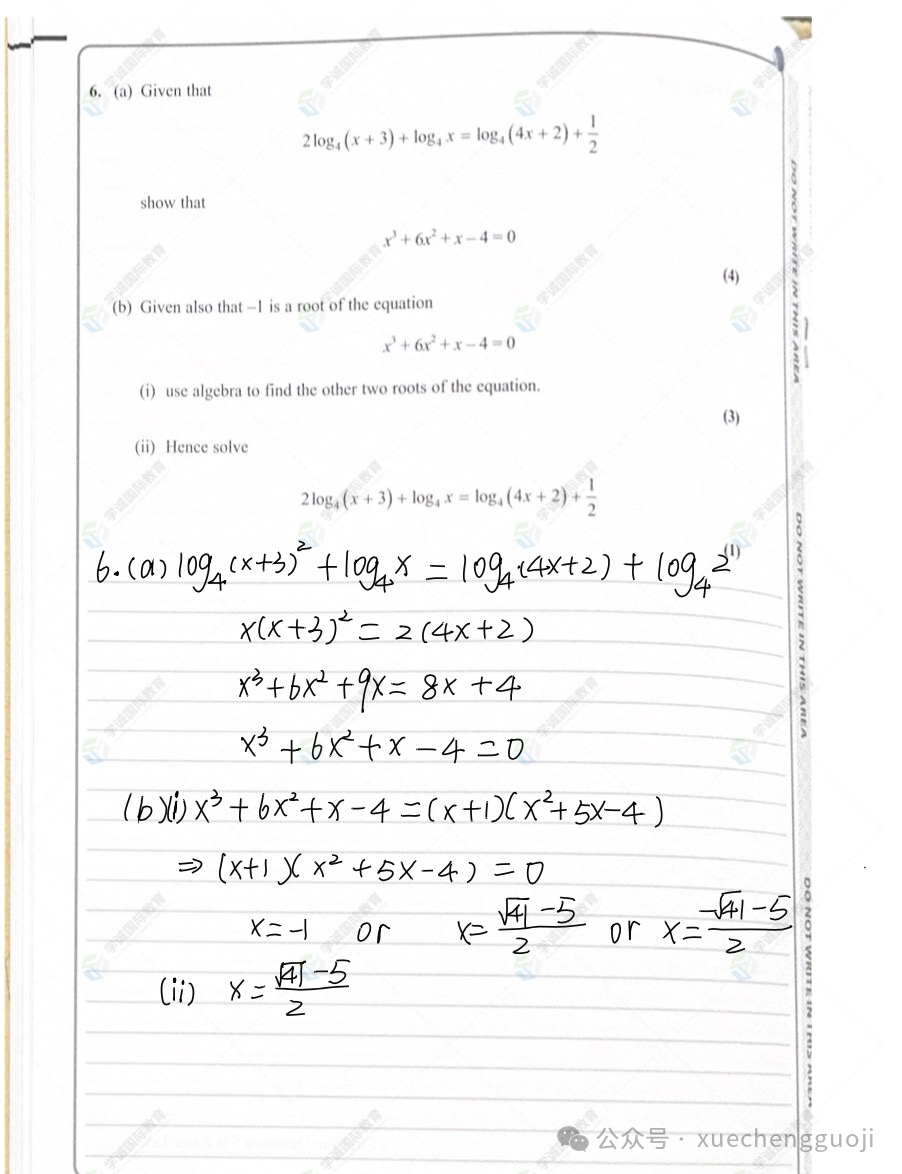 6. (a) Given that
2log₄(x + 3) + log₄ x = log₄(4x + 2) + 1/2
show that
x³ + 6x² + x − 4 = 0
(4)
(b) Given also that −1 is a root of the equation
x³ + 6x² + x − 4 = 0
(i) use algebra to find the other two roots of the equation.
(3)
(ii) Hence solve
2log₄(x + 3) + log₄ x = log₄(4x + 2) + 1/2
(1)
6.(a) log₄(x+3)² + log₄x = log₄(4x+2) + log₄2
x(x+3)² = 2(4x+2)
x³+6x²+9x = 8x+4
x³+6x²+x−4=0
(b)(i) x³+6x²+x−4=(x+1)(x²+5x−4)
⇒ (x+1)(x²+5x−4)=0
x=−1 or x=(√41−5)/2 or x=(−√41−5)/2
(ii) x=(√41−5)/2
DO NOT WRITE IN THIS AREA
DO NOT WRITE IN THIS AREA
DO NOT WRITE IN THIS AREA
学诚国际教育
公众号 · xuechengguoji